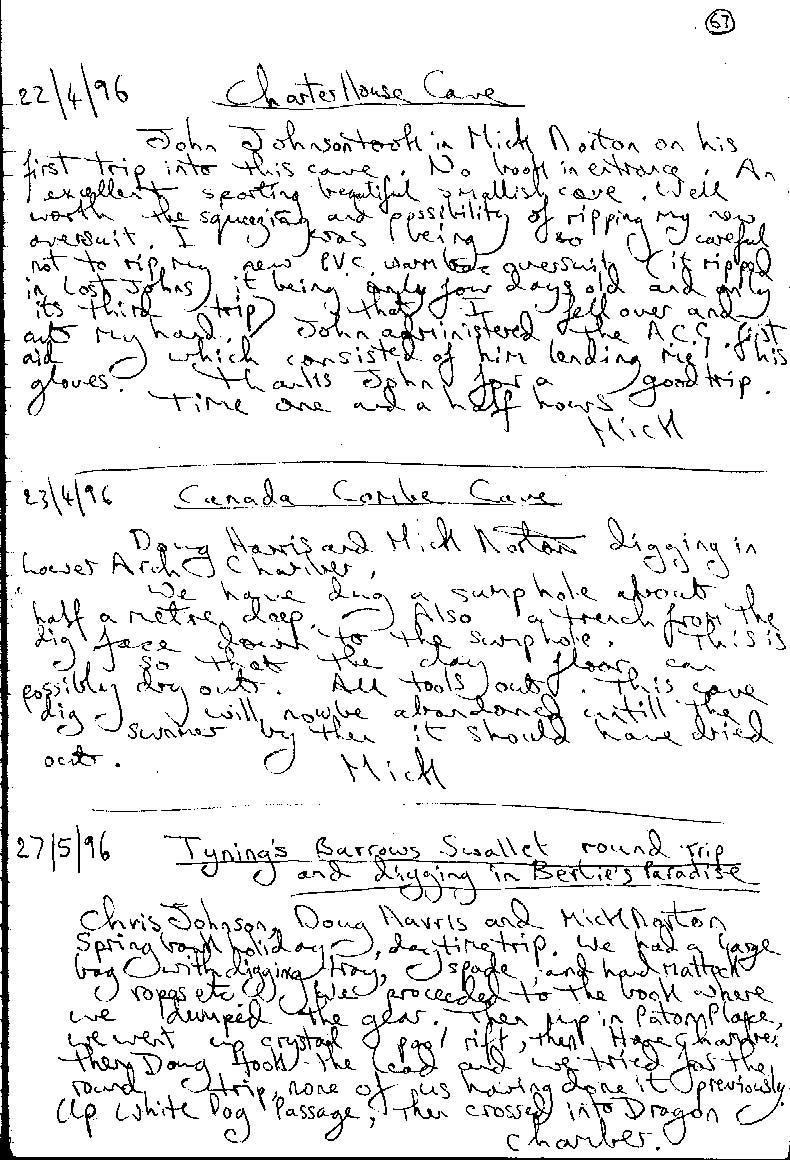 67
22/4/96 Charterhouse Cave
John Johnson took in Mick Norton on his
first trip into this cave. No book in entrance. An
excellent sporting beautiful smallish cave. Well
worth the squeezing and possibility of ripping my new
oversuit. I was being so careful
not to rip my new PVC warmbac oversuit (it ripped
in Lost Johns) it being only four days old and only
its third trip, that I fell over and
cut my hand. John administered the A.C.G. first
aid which consisted of him lending me his
gloves. Thanks John for a good trip.
Time one and a half hours
Mick
23/4/96 Canada Combe Cave
Doug Harris and Mick Norton digging in
Lower Arch Chamber.
We have dug a sump hole about
half a metre deep. Also a trench from the
dig face down to the sumphole. This is
so that the clay floor can
possibly dry out. All tools out. This cave
dig will now be abandoned untill the
summer by then it should have dried
out. Mick
27/5/96 Tyning's Barrows Swallet round trip
and digging in Bertie's Paradise
Chris Johnson, Doug Harris and Mick Norton
Spring bank holiday, daytime trip. We had a large
bag with digging tray, spade, and hand mattock
ropes etc. We proceeded to the book where
we dumped the gear. Then up in Paton Place,
we went up crystal pool rift, then Hope Chamber
then Doug took the lead and we tried for the
round trip, none of us having done it previously.
Up White Dog Passage, then crossed into Dragon
Chamber.